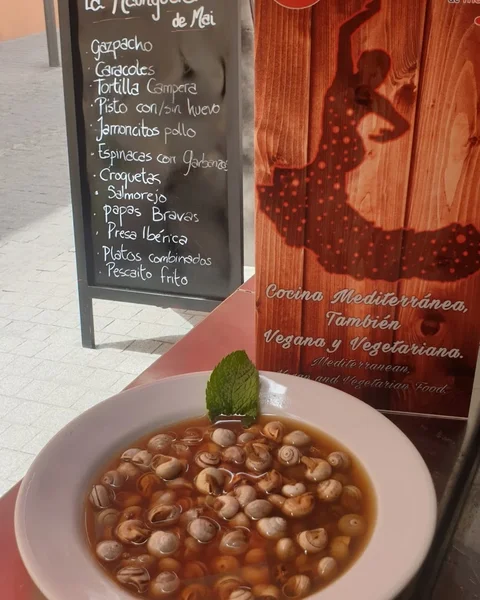 de Mai
gazpacho
Caracoles
Tortilla Campera
Pisto con/sin huevo
Jamoncitos pollo
Espinacas con garbanzos
Croquetas
Salmorejo
papas Bravas
Presa Ibérica
Platos combinados
Pescaito frito
Cocina Mediterránea,
También
Vegana y Vegetariana.
Mediterranean,
Vegan and Vegetarian Food.